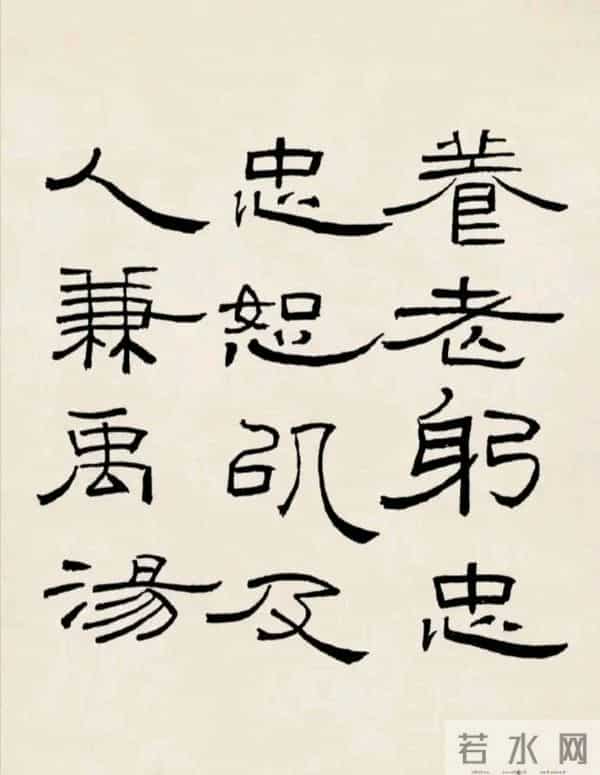 養老躬忠
忠恕以及
人兼禹湯
若水网